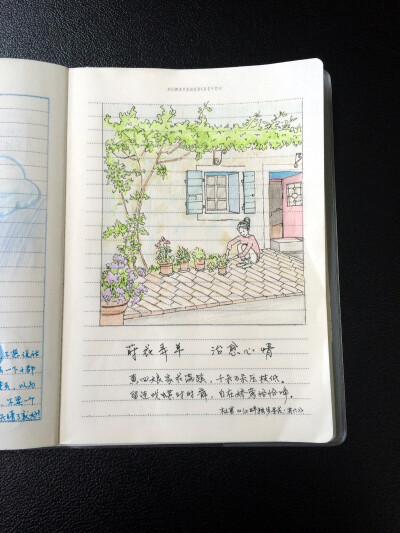 莳花弄草 治愈心情
黄四娘家花满蹊，千朵万朵压枝低。
留连戏蝶时时舞，自在娇莺恰恰啼。
杜甫《江畔独步寻花·其六》
一个
以为
不要一个